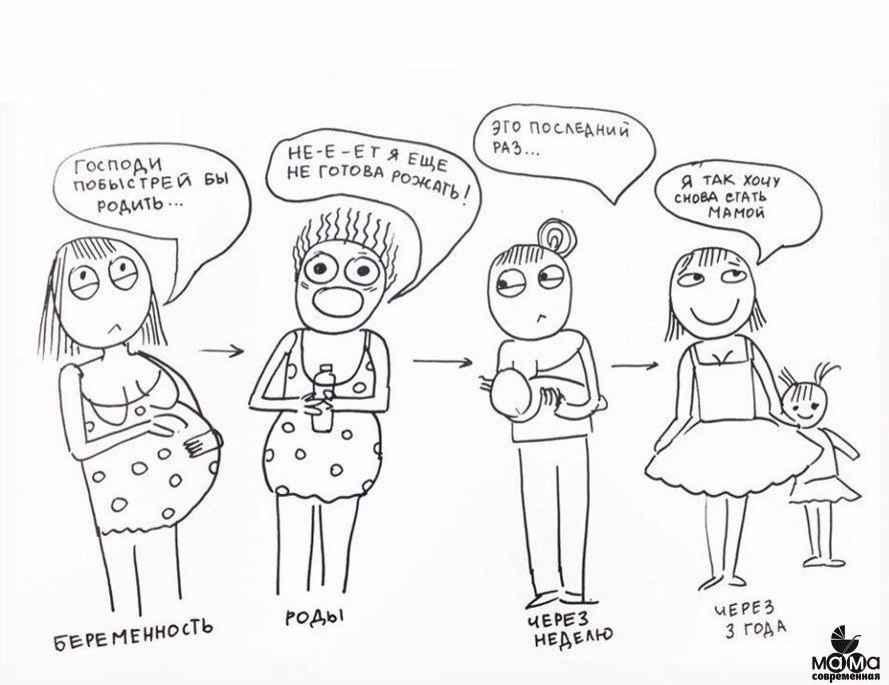 ГОСПОДИ
ПОБЫСТРЕЙ БЫ
РОДИТЬ...
НЕ-Е-ЕТ Я ЕЩЕ
НЕ ГОТОВА РОЖАТЬ!
ЭТО ПОСЛЕДНИЙ
РАЗ...
Я ТАК ХОЧУ
СНОВА СТАТЬ
МАМОЙ
БЕРЕМЕННОСТЬ
РОДЫ
ЧЕРЕЗ
НЕДЕЛЮ
ЧЕРЕЗ
3 ГОДА
мама
современная